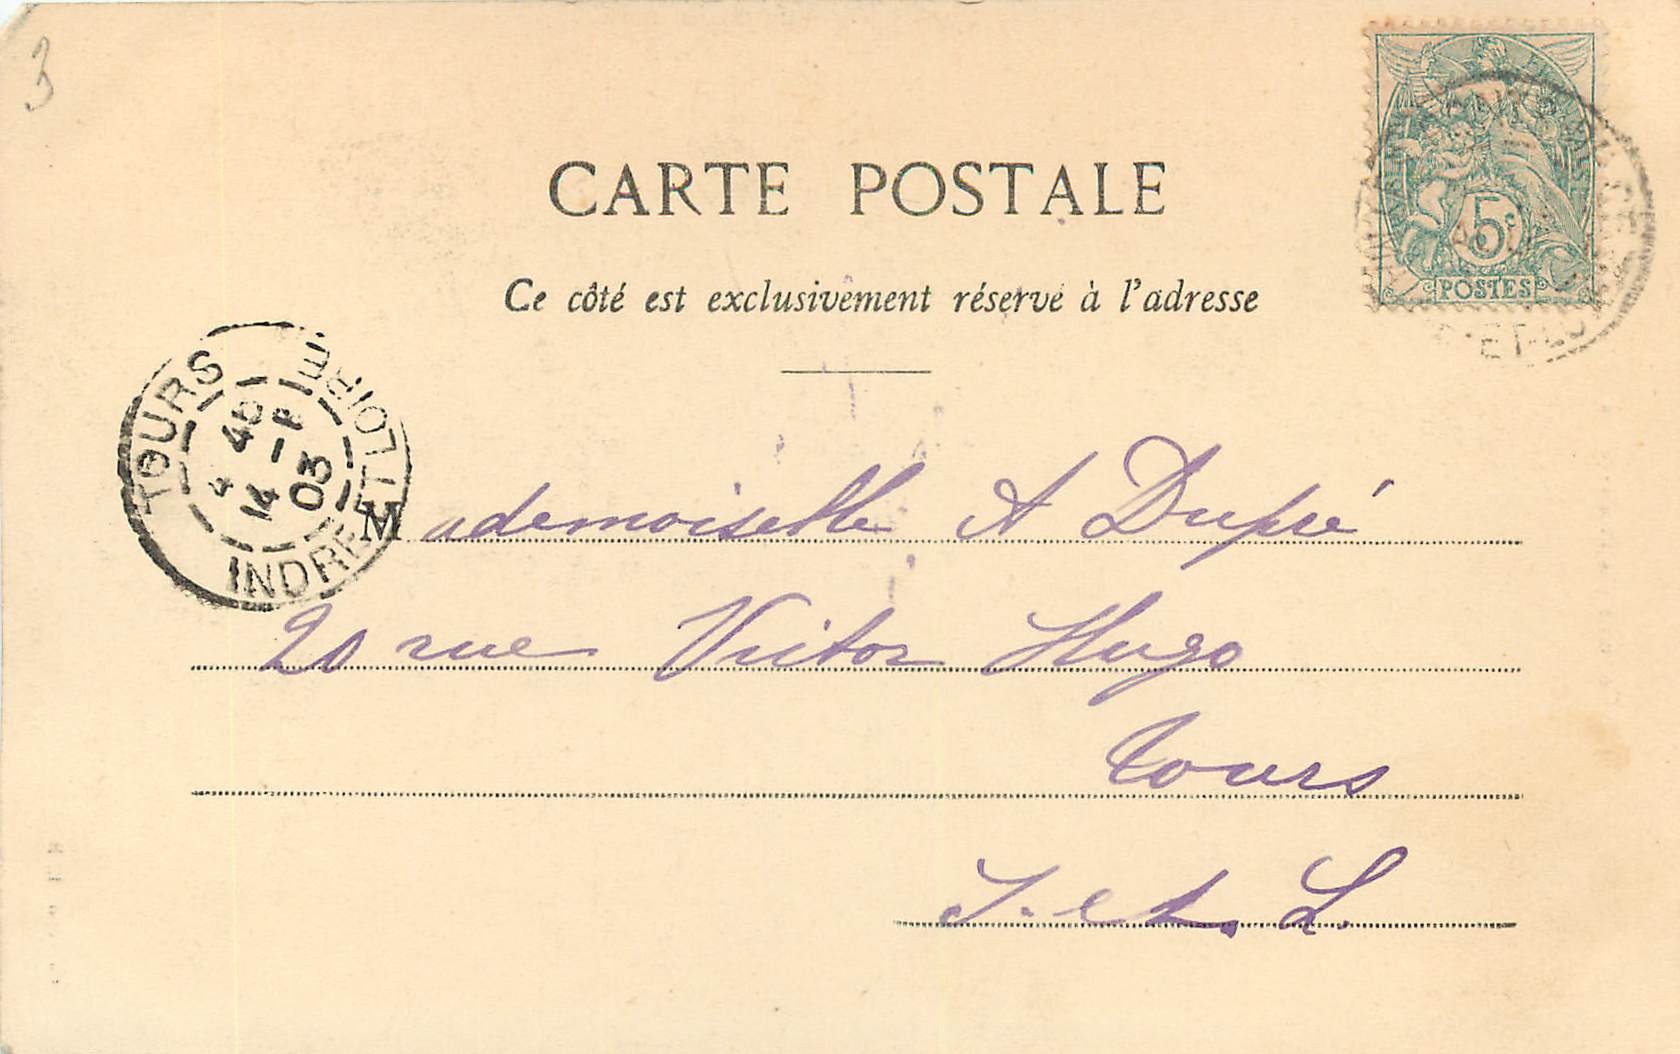 3
CARTE POSTALE
Ce côté est exclusivement réservé à l'adresse
5c
POSTES
TOURS
INDRE ET LOIRE
4 40
14 - 8
03
Mademoiselle A Dupré
20 rue Victor Hugo
Tours
I. et L.